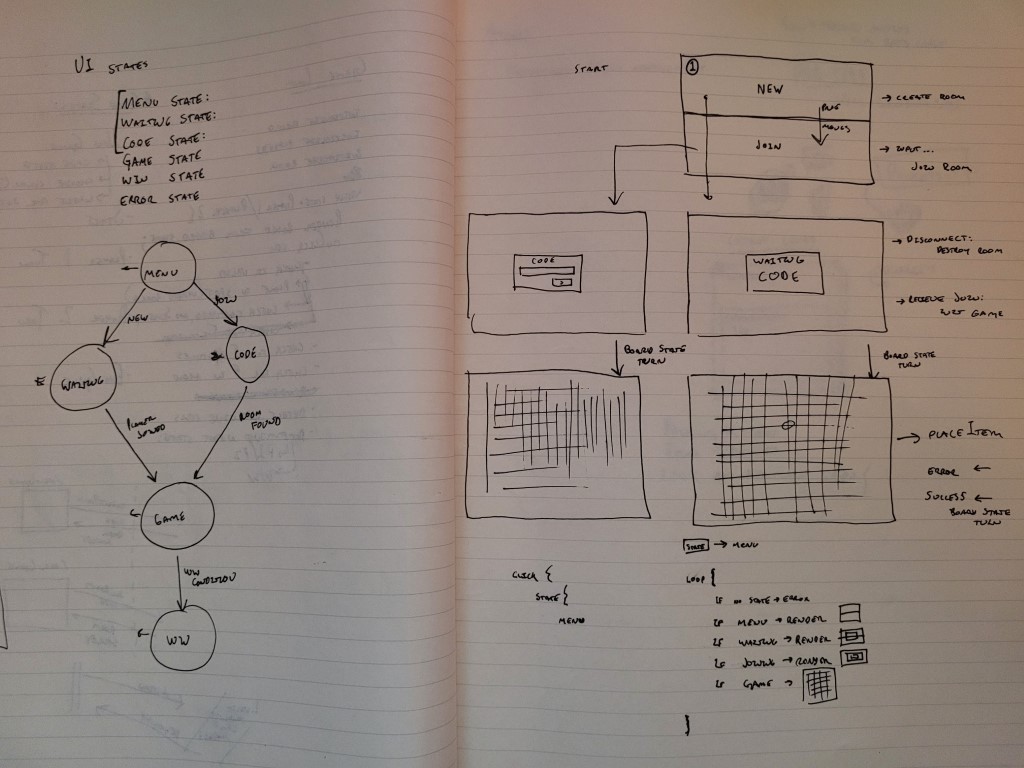 UI STATES
MENU STATE:
WAITING STATE:
CODE STATE:
GAME STATE
WIN STATE
ERROR STATE
MENU
NEW
JOIN
WAITING
CODE
PLAYER JOINED
ROOM FOUND
GAME
WIN CONDITION
WIN
START
1
NEW
JOIN
MOVES
→ CREATE ROOM
→ INPUT...
JOIN ROOM
CODE
WAITING
CODE
→ DISCONNECT:
DESTROY ROOM
→ RECIEVE JOIN:
INIT GAME
BOARD STATE
TURN
BOARD STATE
TURN
→ PLACE ITEM
ERROR ←
SUCCESS ←
BOARD STATE
TURN
STATE → MENU
CLICK {
STATE {
MENU
LOOP {
IF NO STATE → ERROR
IF MENU → RENDER
IF WAITING → RENDER
IF JOINING → RENDER
IF GAME →
}